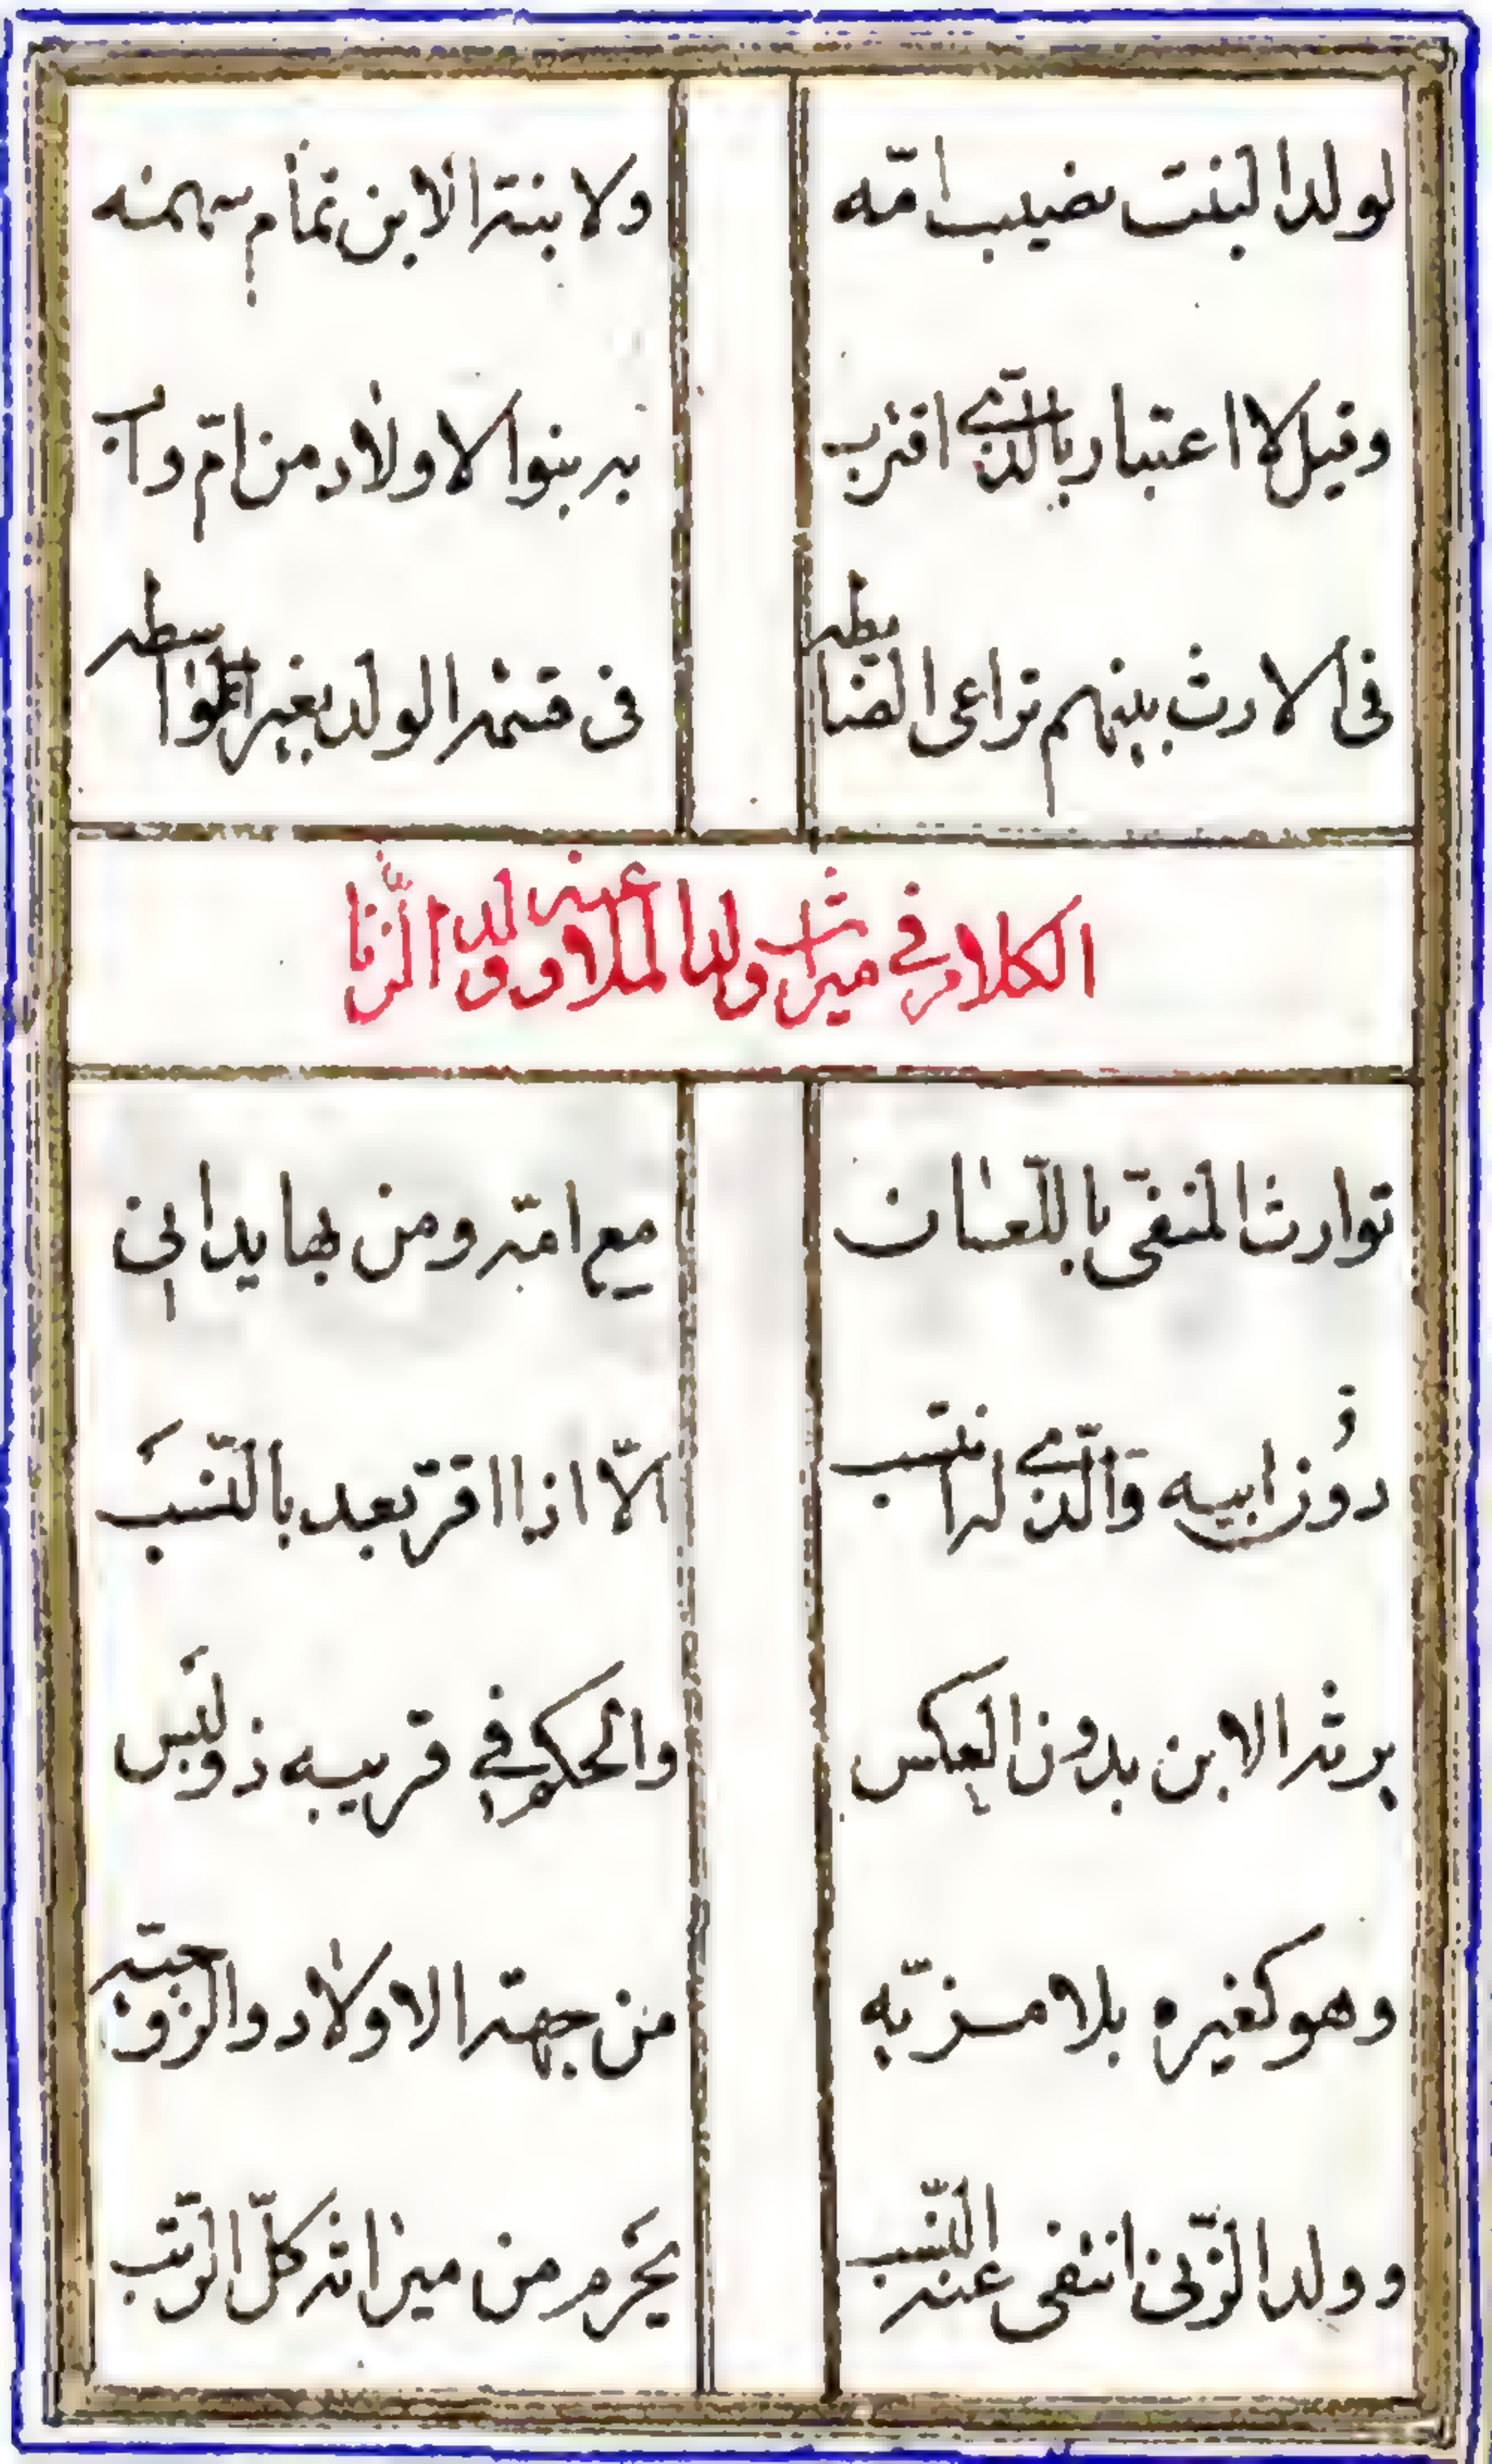 لولد البنت نصيب امّه ولابنة الابن تمام سهمه
وقيل لا اعتبار بالّذي اقترب به بنوا الاولاد من امّ واب
في الارث بينهم تراعى الضابطه في قسمة الولد بغير الواسطه
الكلام في ميراث ولد الملاعنه وولد الزّنا
توارث المنفىّ باللّعان مع امّه ومن بها يداني
دون ابيه والّذي له انتسب الّا اذا اقرّ بعد بالنّسب
يرثه الابن بدون العكس والحكم في قريبه ذو لبس
وهو كغيره بلا مزيّه من جهة الاولاد والزّوجيّه
وولد الزّنى انتفى عنه النّسب يحرم من ميراثه كلّ الرّتب